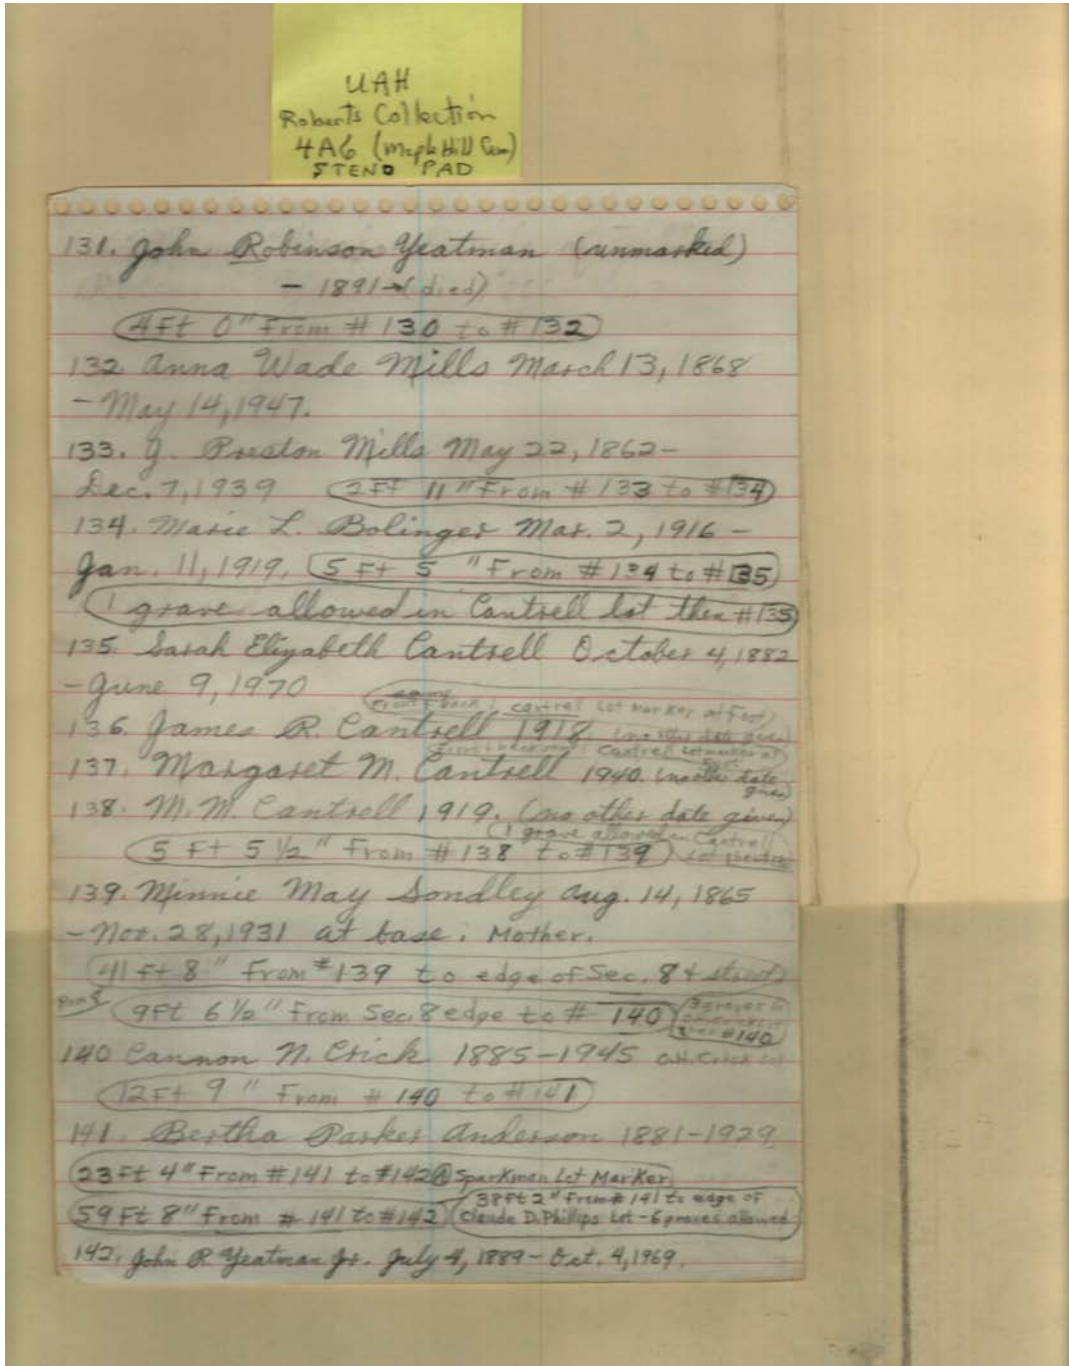 UAH
Roberts Collection
4A6 (Maple Hill Cem)
STENO PAD
131. John Robinson Yeatman (unmarked)
- 1891 → (died)
4Ft 0" From # 130 to # 132
132 Anna Wade Mills March 13, 1868
- May 14, 1947.
133. J. Preston Mills May 22, 1862-
Dec. 7, 1939 2Ft 11" From # 133 to #134
134. Marie L. Bolinger Mar. 2, 1916 -
Jan. 11, 1919. 5 Ft 5 " From # 134 to # 135
1 grave allowed in Cantrell lot then #135
135. Sarah Elizabeth Cantrell October 4, 1882
- June 9, 1970
Front & back : Cantrell Lot Marker at foot
136. James R. Cantrell 1918. (no other date given)
Cantrell Lot marker at
137. Margaret M. Cantrell 1940. (no other date
given)
138. M. M. Cantrell 1919. (no other date given)
1 grave allowed in Cantrell
5 Ft 5 1/2" From # 138 to # 139 Lot
139. Minnie May Sondley Aug. 14, 1865
- Nov. 28, 1931 at base: Mother.
41 Ft 8" From # 139 to edge of Sec. 8 & street
9Ft 6 1/2" From Sec. 8 edge to # 140 3 graves in
#140
140 Cannon N. Crick 1885-1945 O.H. Crick Lot
12Ft 9" From # 140 to # 141
141. Bertha Parker Anderson 1881-1929
23Ft 4" From #141 to #142 @ Sparkman Lot Marker
38Ft 2" From # 141 to edge of
59 Ft 8" From # 141 to #142 Claude D. Phillips Lot - 6 graves allowed
142. John R Yeatman Jr. July 4, 1889 - Oct. 4, 1969.